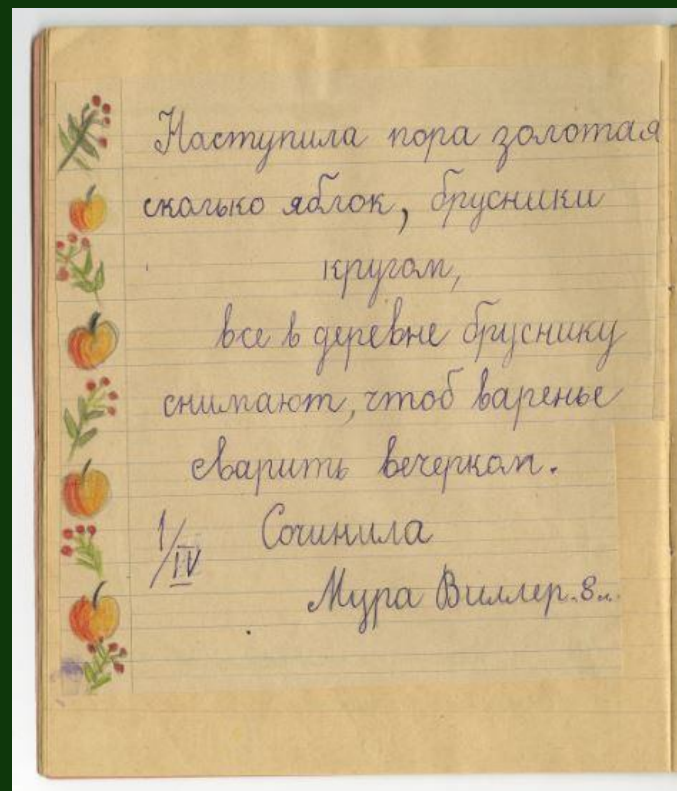 Наступила пора золотая
сколько яблок, брусники
кругом,
все в деревне бруснику
снимают, чтоб варенье
сварить вечерком.
1/IV Сочинила
Мура Виллер. 8 л.